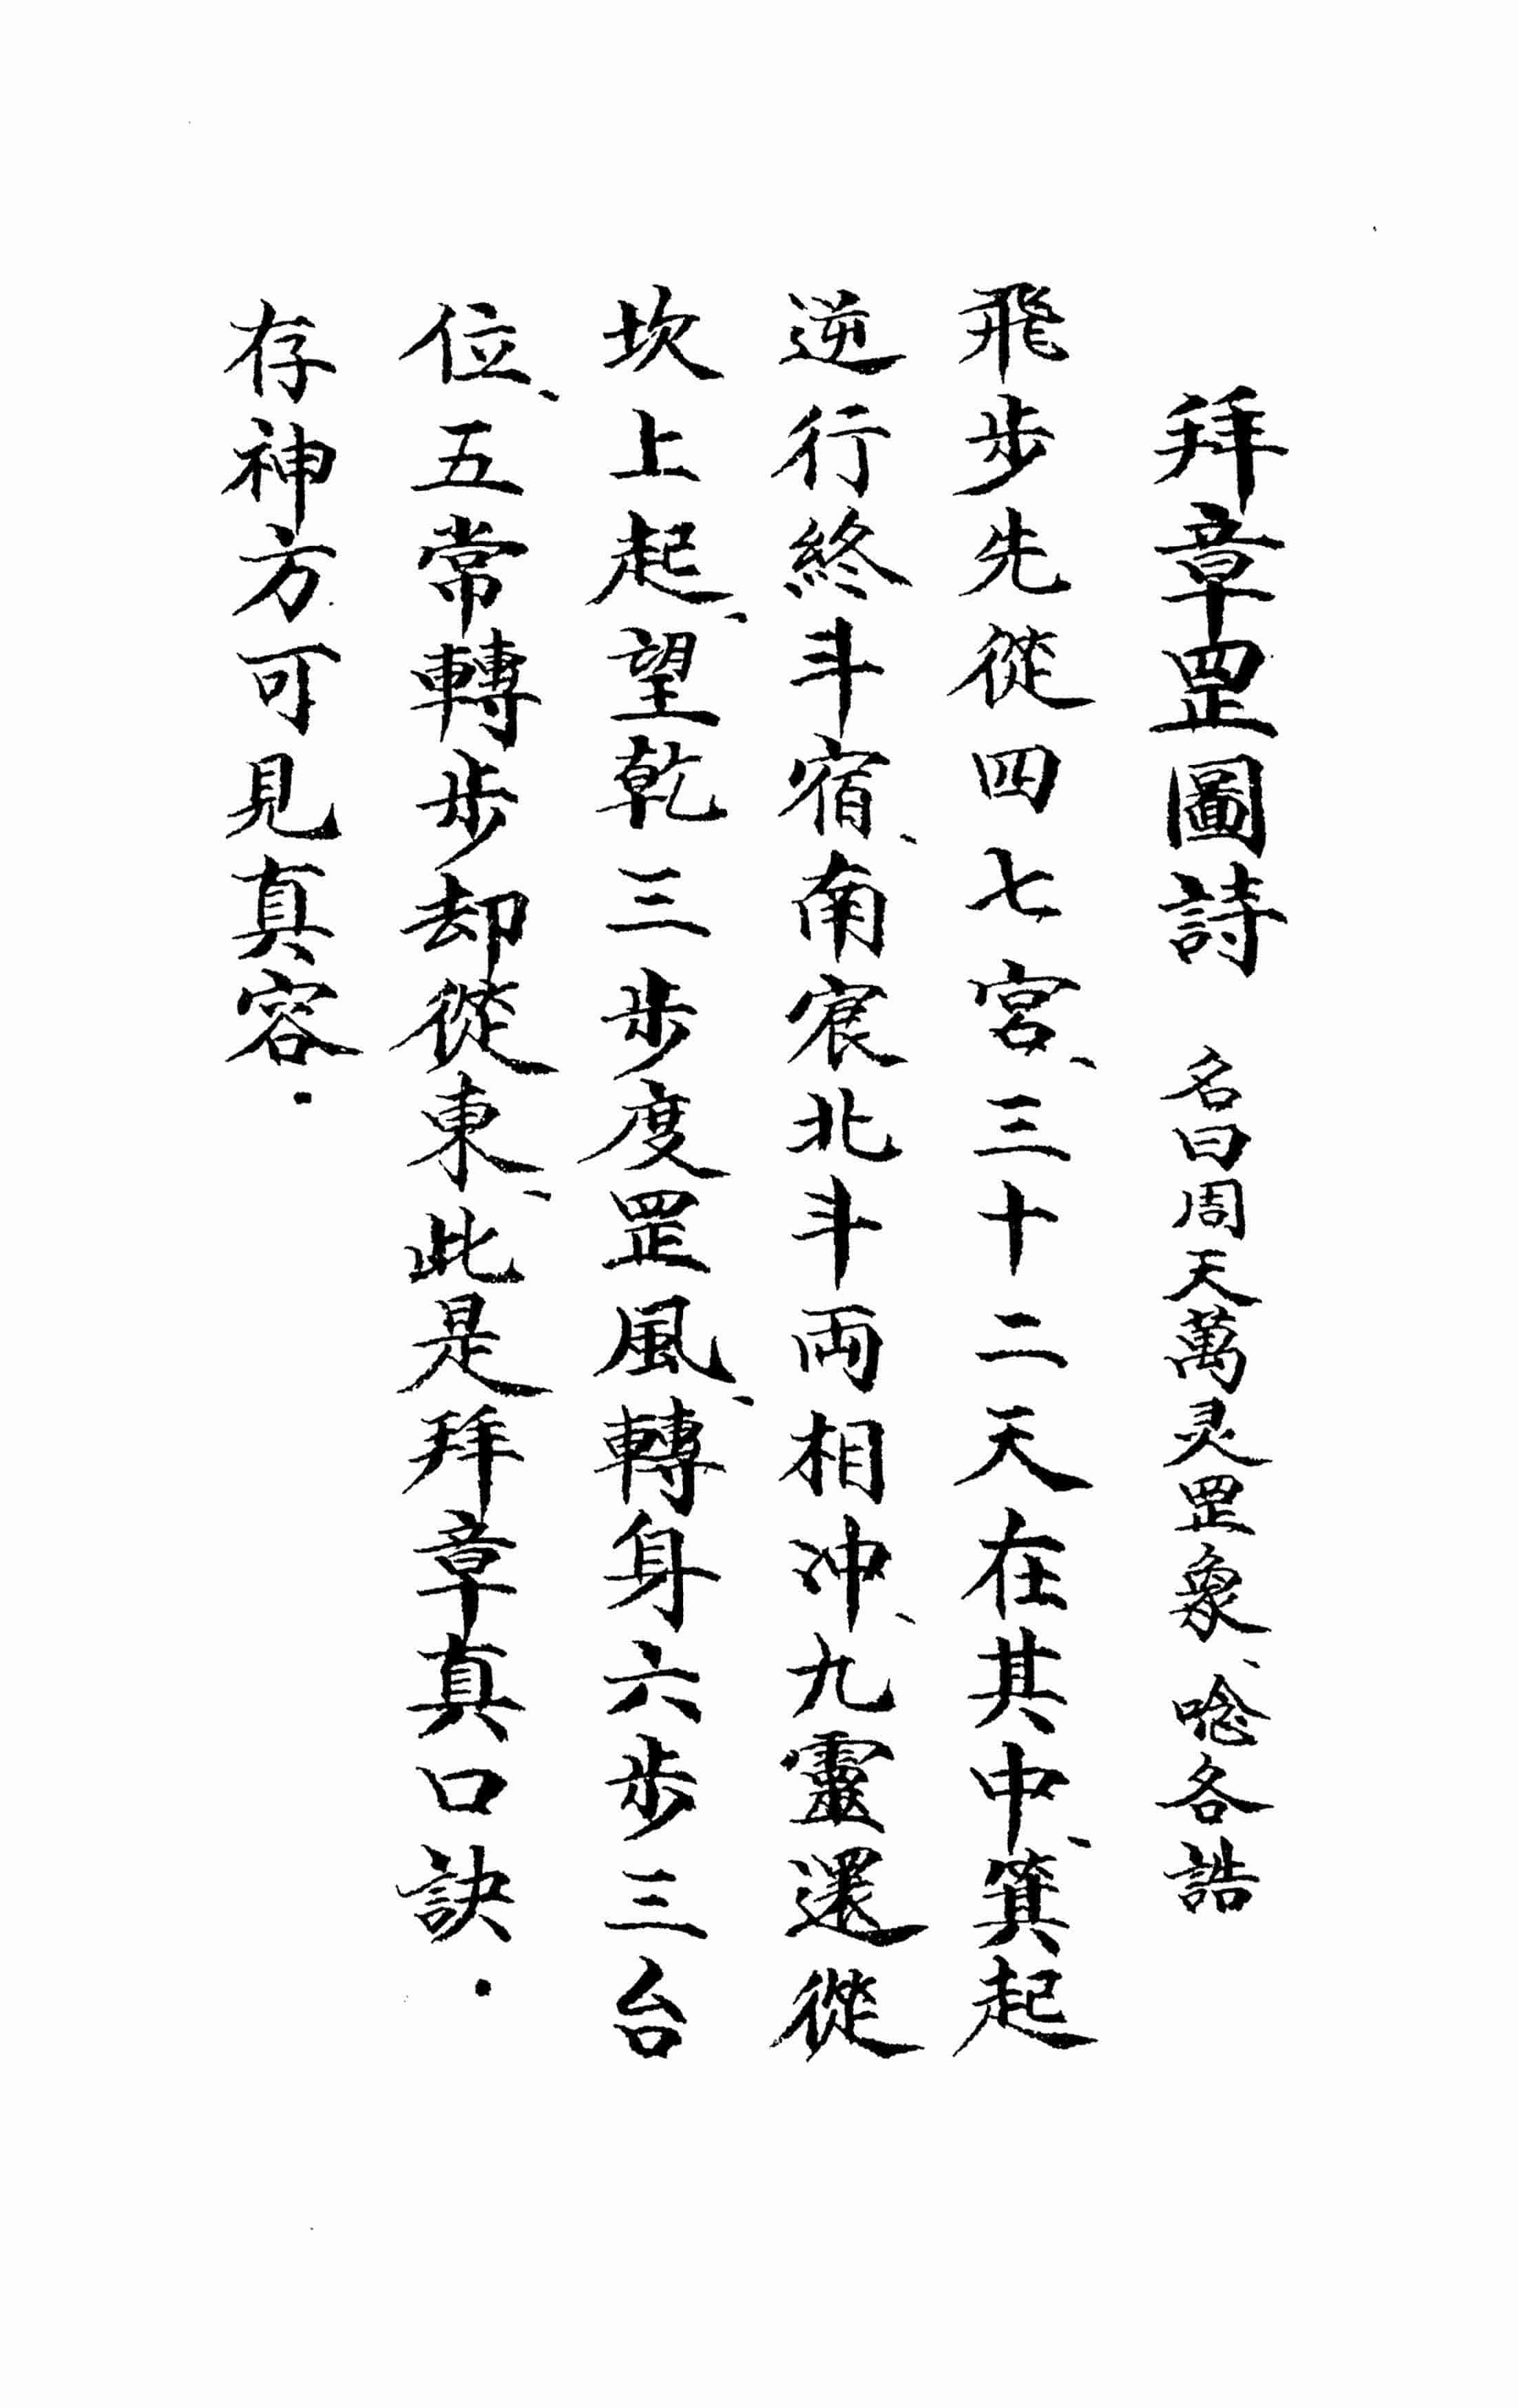 拜章罡圖詩 名曰周天萬灵罡象、唸各誥
飛步先從四七宮、三十二天在其中、箕起
逆行終斗宿、南宸北斗両相冲、九靈還從
坎上起、望乾三步度罡風、轉身六步三台
位、五常轉步却從東、此是拜章真口訣．
存神方可見真容．